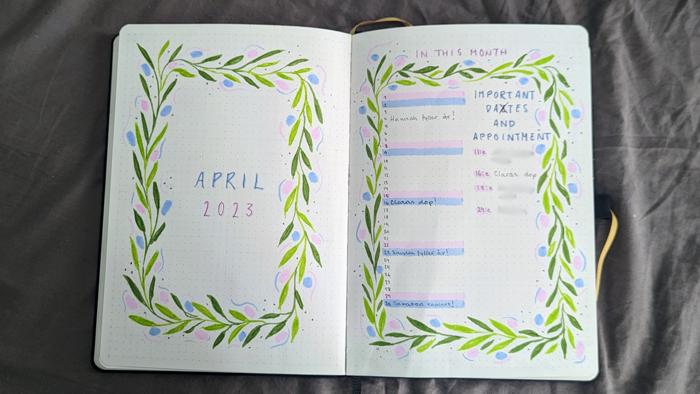 APRIL
2023
IN THIS MONTH
1
2
3 Hannah fyller år!
4
5
6
7
8
9
10
11
12
13
14
15
16 Claras dop!
17
18
19
20
21
22
23 fyller år!
24
25
26
27
28
29
30
IMPORTANT
DAXTES
AND
APPOINTMENT
11:e
16:e Claras dop
18:e
29:e